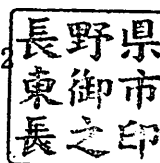 2
長野県
東御市
長之印